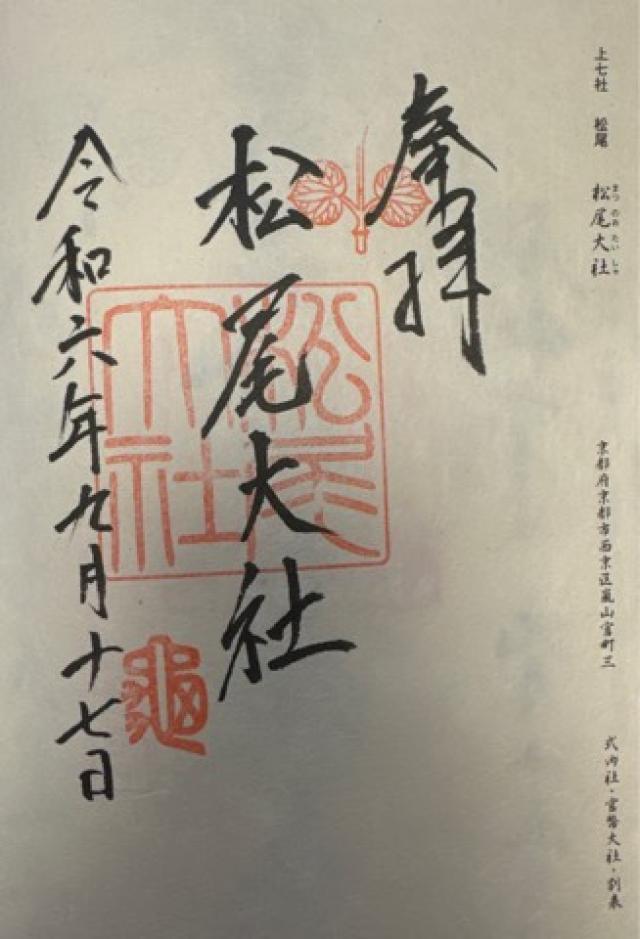 上七社 松尾 松尾大社
まつのおたいしゃ
京都府京都市西京区嵐山宮町三
式内社・官幣大社・別表
奉拝
松尾大社
松尾大社
令和六年九月十七日
亀